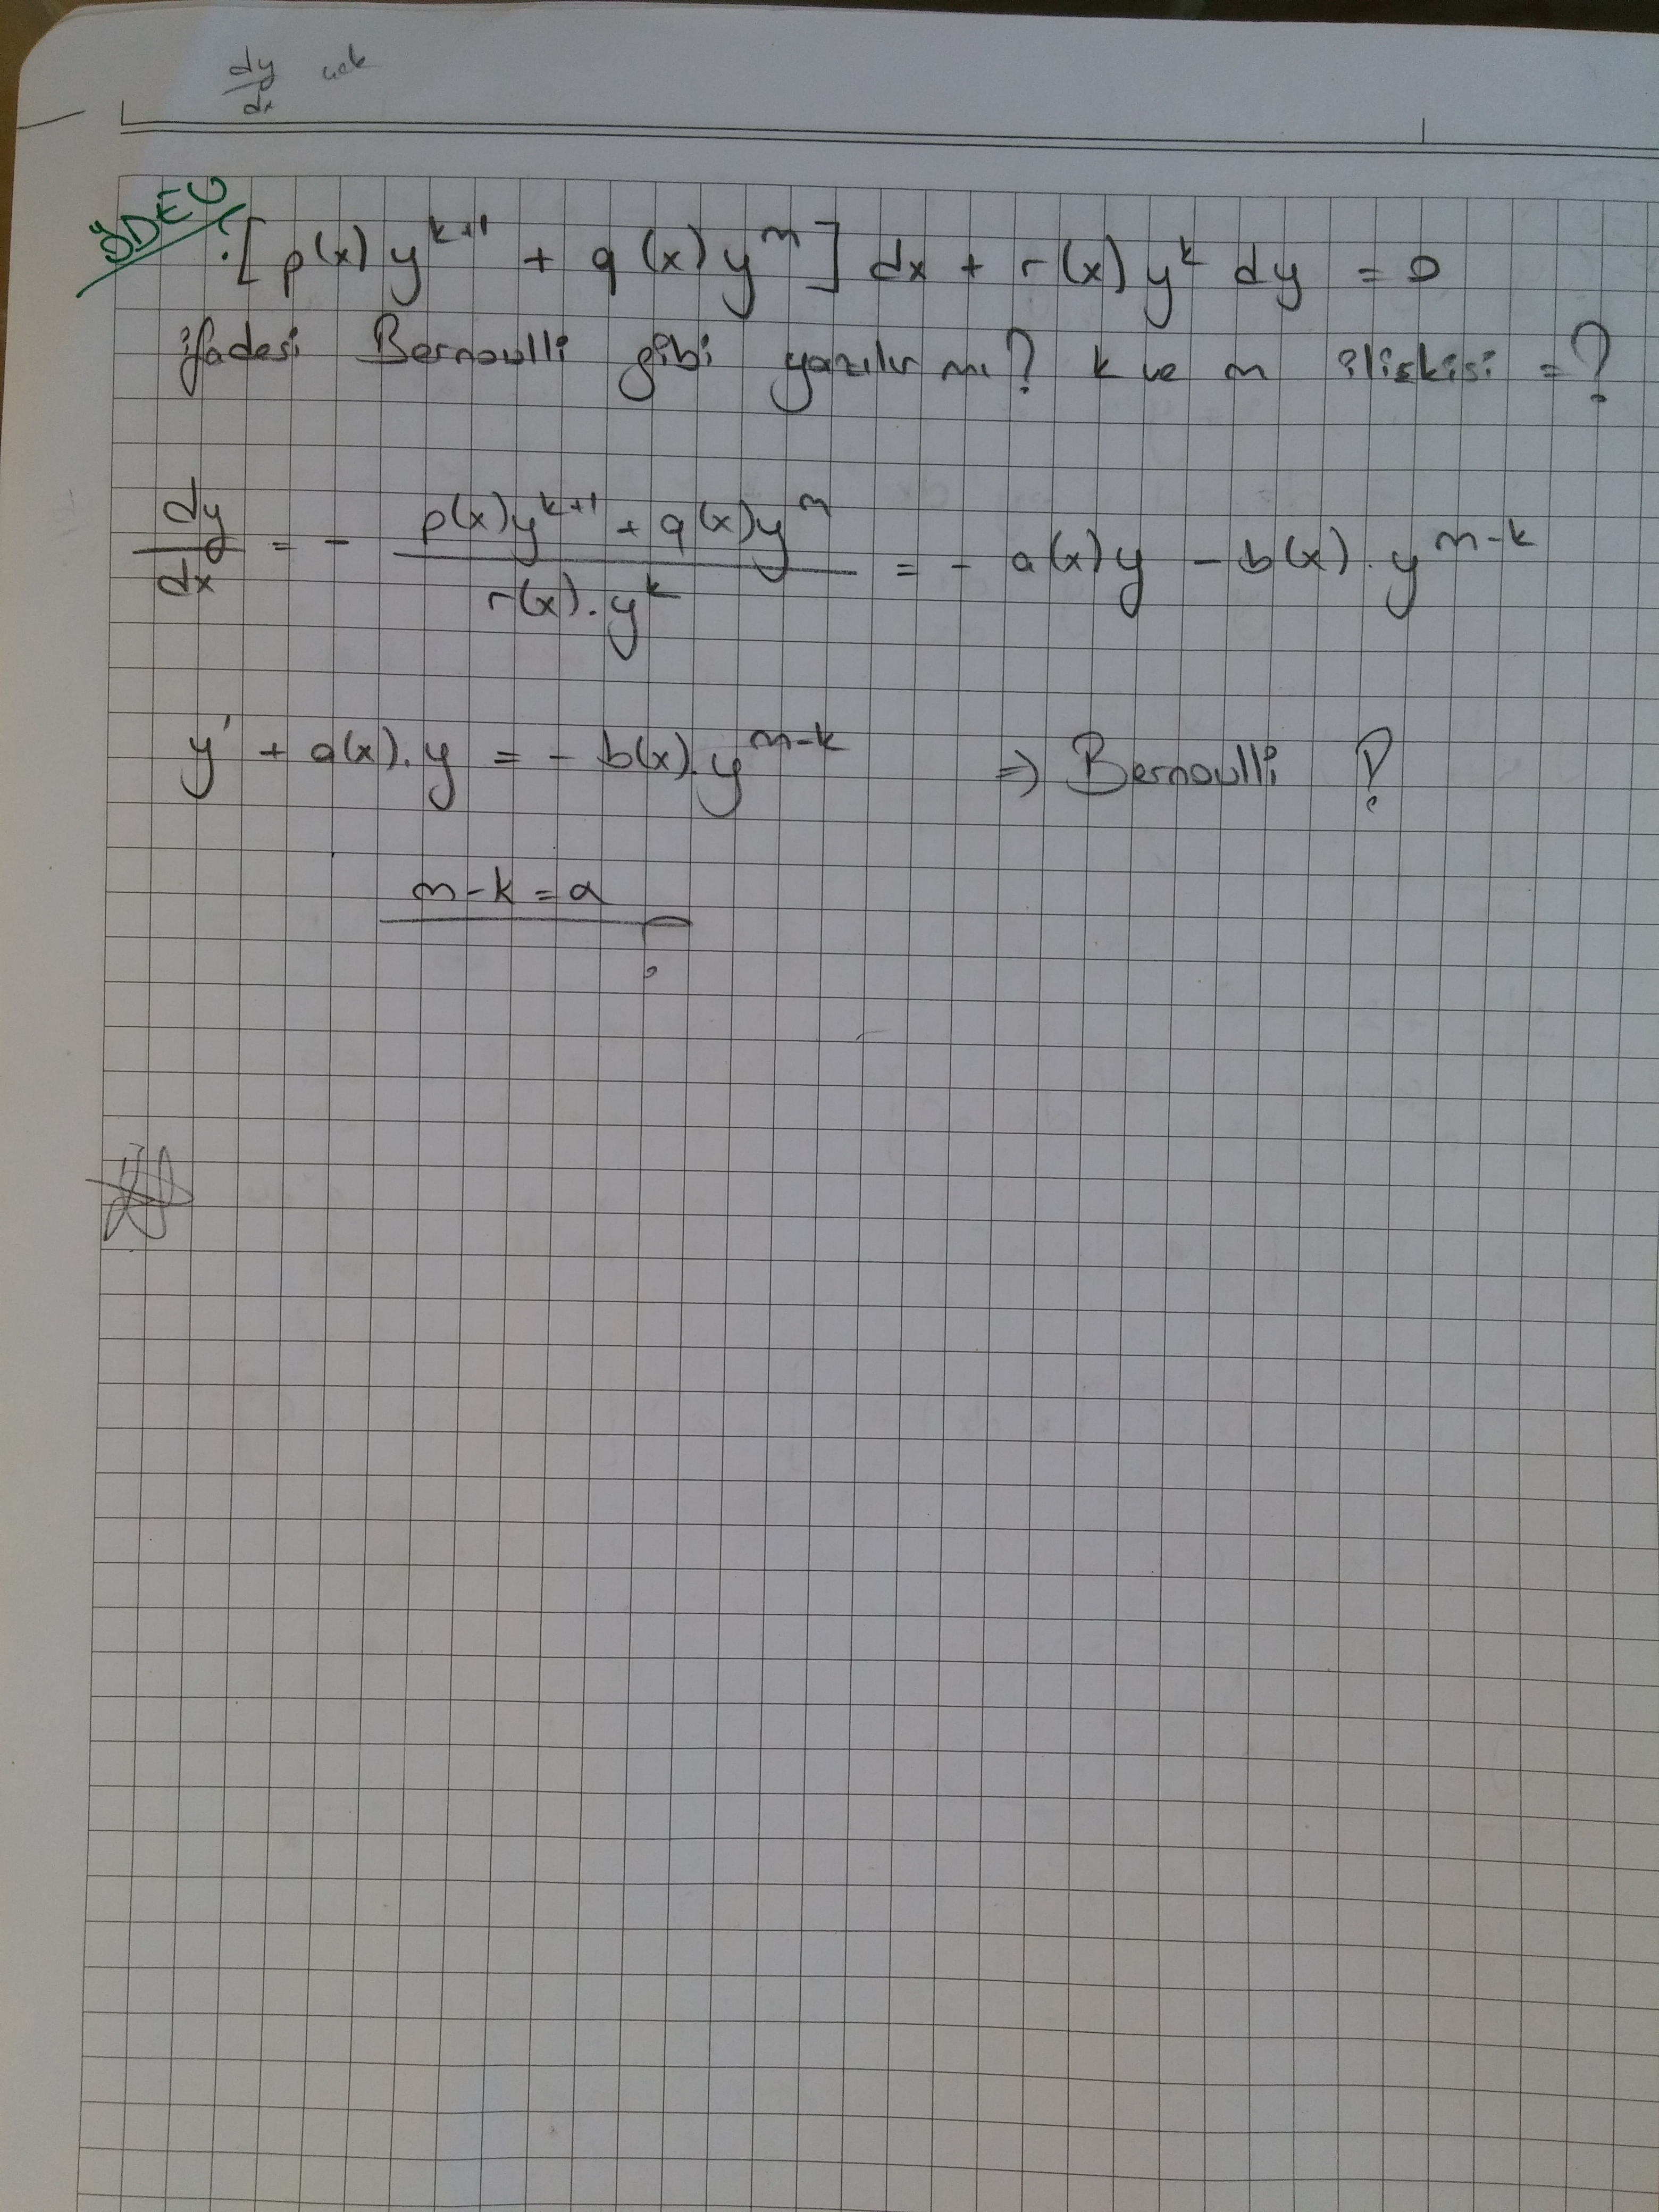 dy/dx
ÖDEV
: [p(x) y^{k+1} + q(x) y^m] dx + r(x) y^k dy = 0
ifadesi Bernoulli gibi yazılır mı? k ve m ilişkisi = ?
dy/dx = - (p(x)y^{k+1} + q(x)y^m)/(r(x).y^k) = - a(x)y - b(x).y^{m-k}
y' + a(x).y = - b(x).y^{m-k} ⇒ Bernoulli ?
m-k = α